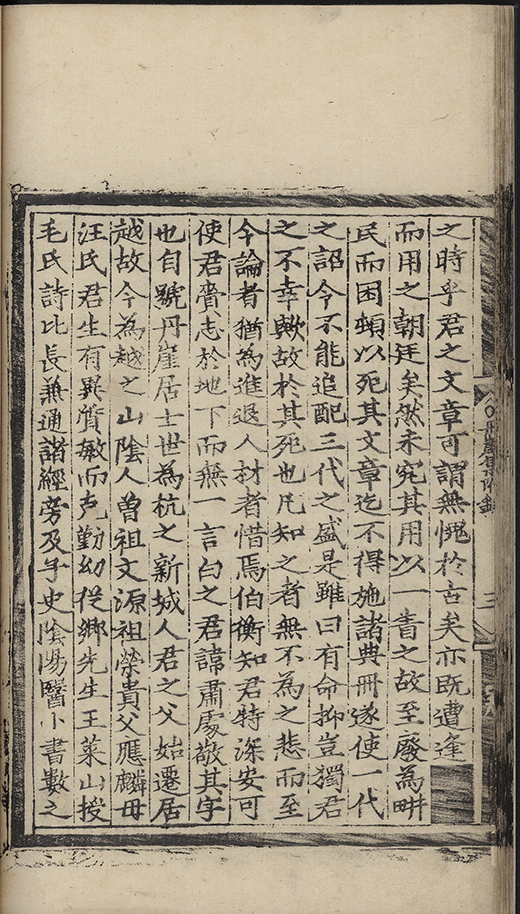 之時乎君之文章可謂無愧於古矣亦既遭逢
而用之朝廷矣然未究其用以一眚之故至廢為畊
民而困頓以死其文章迄不得施諸典冊遂使一代
之詔令不能追配三代之盛是雖曰有命抑豈獨君
之不幸歟故於其死也凡知之者無不為之悲而至
今論者猶為進退人材者惜焉伯衡知君特深安可
使君賷志於地下而無一言白之君諱肅處敬其字
也自號丹崖居士世為杭之新城人君之父始遷居
越故今為越之山陰人曾祖文源祖榮貴父應麟母
汪氏君生有異質敏而克勤幼從鄉先生王萊山授
毛氏詩比長兼通諸經旁及子史陰陽醫卜書數之
三